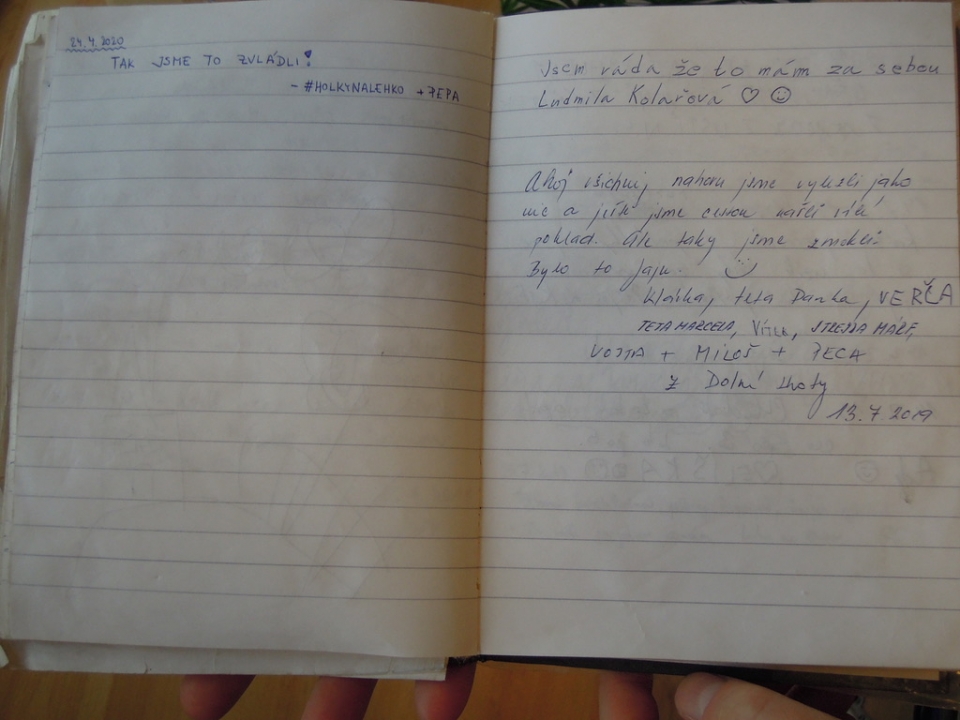 24.4.2020
TAK JSME TO ZVLÁDLI!
- #HOLKYNALEHKO + PEPA
Jsem ráda že to mám za sebou
Ludmila Kolařová ♡ ☺
Ahoj všichni, nahoru jsme vylezli jako
nic a ještě jsme cestou našli
poklad. Ale taky jsme zmokli.
Bylo to fajn.
Klárka, teta Danka, VERČA
TETA MARCELA, STREJDA MÁRF,
VOJTA + MILOŠ + PECA
z Dolní Lhoty
13.7.2019